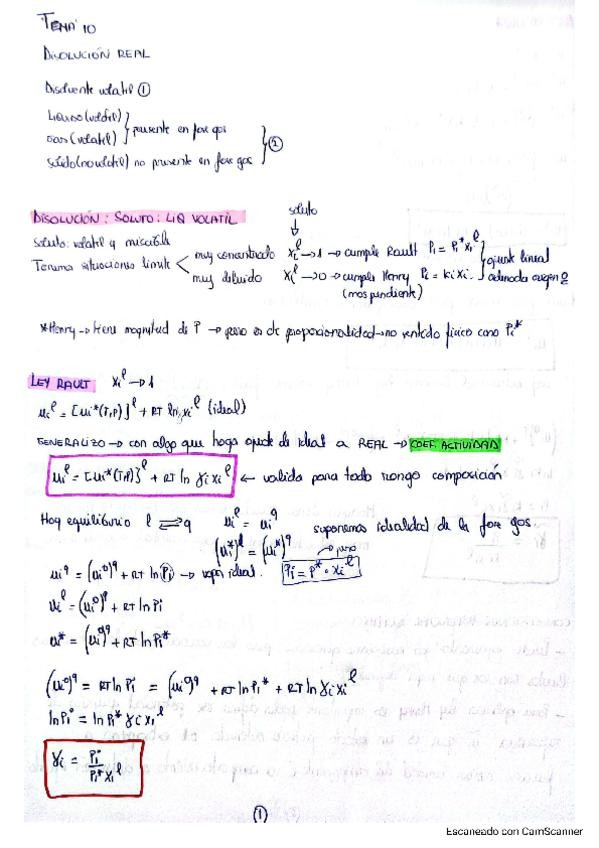 TEMA 10
DISOLUCIÓN REAL
Disolvente volatil ①
Líquido (volátil)
Gas (volatil) } presente en fase gas
Sólido (no volatil) no presente en fase gas } ②
DISOLUCIÓN: SOLUTO: LIQ VOLATIL
soluto
Soluto: volatil y miscible
Tenemos situaciones limite
muy concentrado xi^l → 1 → cumple Rault Pi = Pi* xi^l
muy diluido xi^l → 0 → cumple Henry Pi = ki xi
(mas pendiente)
ajuste lineal
ordenada origen 0
*Henry → tiene magnitud de P → pero es de proporcionalidad → no sentido fisico como Pi*
LEY RAULT xi^l → 1
ui^l = [ui*(T,P)]^l + RT ln xi^l (ideal)
GENERALIZO → con algo que haga ajuste de ideal a REAL → COEF. ACTIVIDAD
ui^l = [ui*(T,P)]^l + RT ln γi xi^l ← valida para todo rango composición
Hay equilibrio l ⇌ g ui^l = ui^g suponemos idealidad de la fase gas
(ui*)^l = (ui*)^g
puro
ui^g = (ui^0)^g + RT ln (Pi) → vapor ideal. Pi = P* · xi^l
ui^l = (ui^0)^g + RT ln Pi
ui* = (ui^0)^g + RT ln Pi*
(ui^0)^g = RT ln Pi = (ui^0)^g + RT ln Pi* + RT ln γi xi^l
ln Pi = ln Pi* γi xi^l
γi = Pi / Pi* xi^l
①
Escaneado con CamScanner